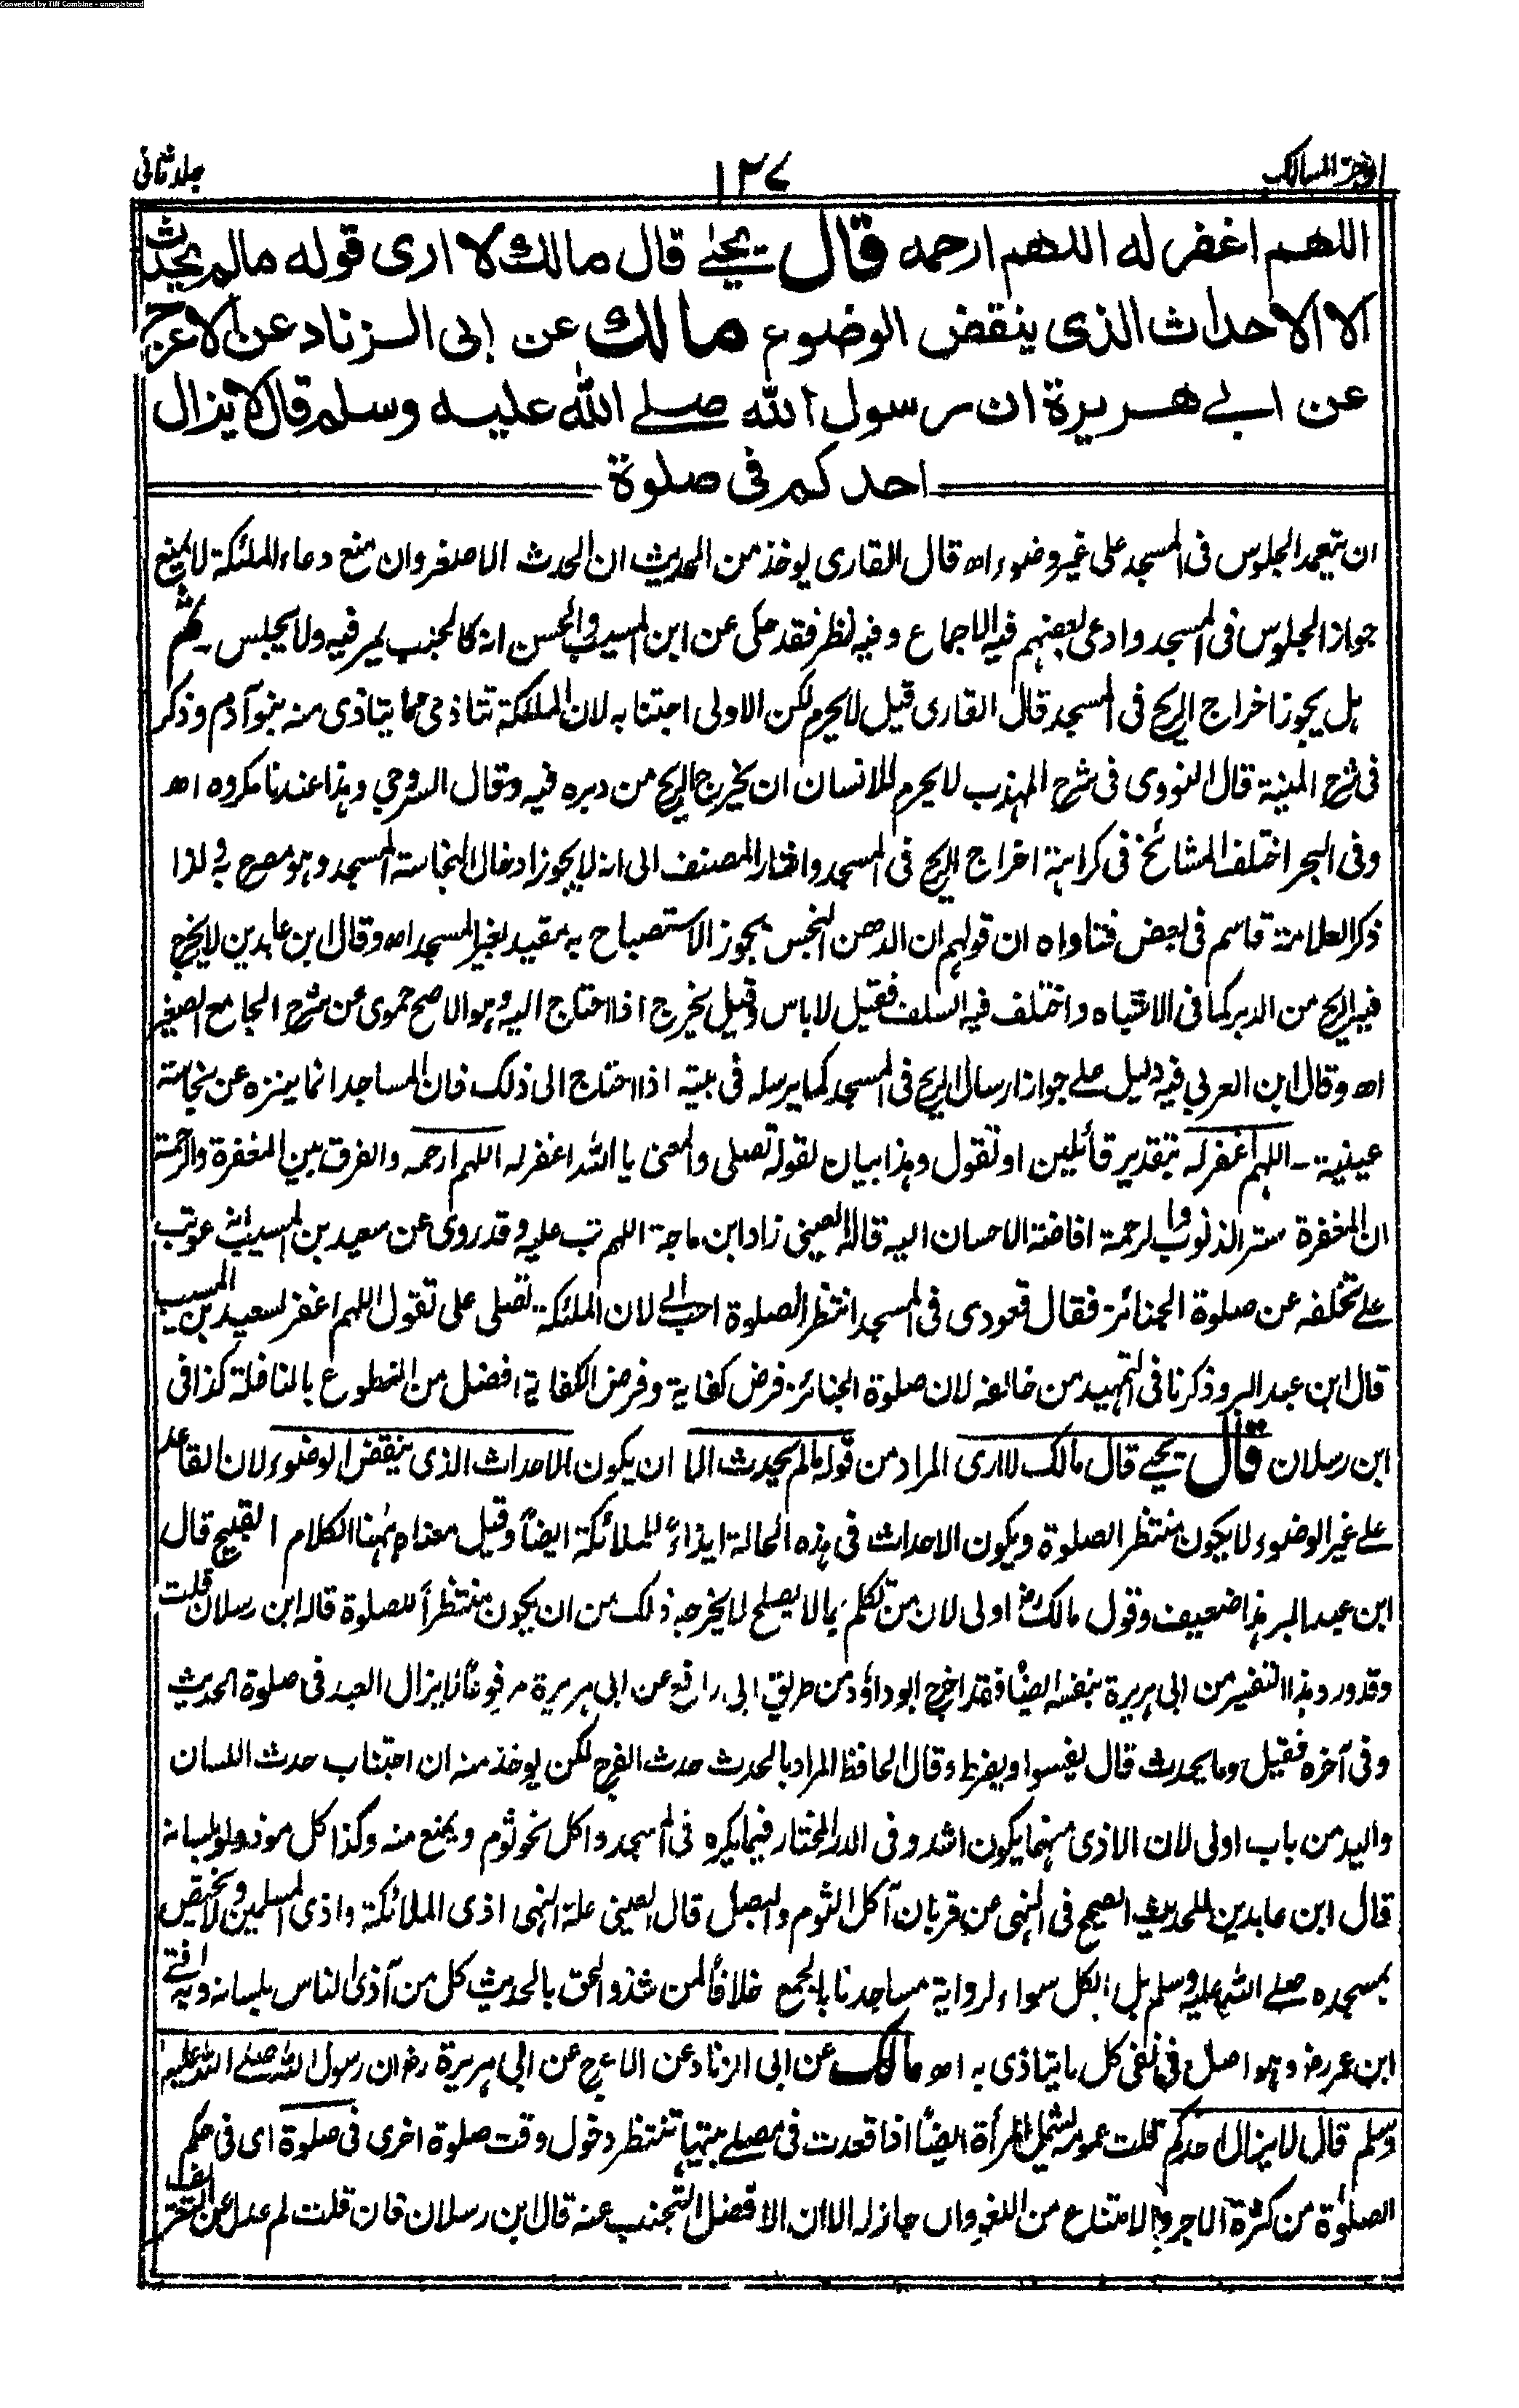 Converted by Tiff Combine - unregistered
اوجز المسالک
١٢٧
جلد ثانی
اللهم اغفر له اللهم ارحمه قال يحيے قال مالك لا ارى قوله مالم يحدث
الا الاحداث الذى ينقض الوضوء مالك عن ابى الزناد عن الاعرج
عن ابي هريرة ان رسول الله صلے الله عليه وسلم قال لا يزال
احدكم فى صلوة
ان يتعمد الجلوس فى المسجد على غير وضوء اھ قال القارى يوخذ من الحديث ان الحدث الاصغر وان منع دعاء الملئكة لا يمنع
جواز الجلوس فى المسجد وادعى بعضهم فيه الاجماع وفيه نظر فقد حكى عن ابن المسيب والحسن انه كالجنب يمر فيه ولا يجلس ـ ثم
ہل يجوز اخراج الريح فى المسجد قال القارى قيل لا يحرم لكن الاولى اجتنابه لان الملئكة تتاذى مما يتاذى منه بنو آدم وذكر
فى شرح المنية قال النووى فى شرح المهذب لا يحرم للانسان ان يخرج الريح من دبره فيه وقال السروجي وہذا عندنا مكروه اھ
وفى البحر اختلف المشائخ فى كراہة اخراج الريح فى المسجد واختار المصنف الى انه لا يجوز ادخال النجاسة المسجد وہو مصرح به ولذا
ذكر العلامة قاسم فى بعض فتاواه ان قولهم ان الدهن النجس يجوز الاستصباح به مقيد بغير المسجد اھ وقال ابن عابدين لا يخرج
فيه الريح من الدبر كما فى الاشباه واختلف فيه السلف فقيل لا باس وقيل يخرج اذا احتاج اليه وہو الاصح حموى عن شرح الجامع الصغير
اھ وقال ابن العربي فيه دليل علے جواز ارسال الريح فى المسجد كما يرسله فى بيته اذا احتاج الى ذلك فان المساجد انما ينزه عن نجاسة
عينية ـ اللهم اغفر له بتقدير قائلين او تقول وہذا بيان لقوله تصلى والمعنى يا الله اغفر له اللهم ارحمه والفرق بين المغفرة والرحمة
ان المغفرة ستر الذنوب والرحمة افاضة الاحسان اليه قاله العينى زاد ابن ماجة اللهم تب عليه وقد روى عن سعيد بن المسيب انه عوتب
علے تخلفه عن صلوة الجنائز فقال قعودى فى المسجد انتظر الصلوة احب الي لان الملئكة تصلى على تقول اللهم اغفر لسعيد بن المسيب
قال ابن عبد البر وذكرنا فى التمہيد من خالفه لان صلوة الجنائز فرض كفاية وفرض الكفاية افضل من التطوع بالنافلة كذا فى
ابن رسلان قال يحيے قال مالك لا ارى المراد من قوله مالم يحدث الا ان يكون الاحداث الذى ينقض الوضوء لان القاعد
علے غير الوضوء لا يكون منتظر الصلوة ويكون الاحداث فى ہذه الحالة ايذاءً للملائكة ايضاً وقيل معناه ہٰهنا الكلام القبيح قال
ابن عبد البر ہذا ضعيف وقول مالك رضـ اولى لان من تكلم بما لا يصلح لا يخرجه ذلك من ان يكون منتظراً للصلوة قاله ابن رسلان قلت
وقد ورد ہذا التفسير من ابى ہريرة بنفسه ايضاً فقد اخرج ابو داؤد من طريق ابى رافع عن ابى ہريرة مرفوعاً لا يزال العبد فى صلوة الحديث
وفى آخره فقيل وما يحدث قال يفسو او يضرط وقال الحافظ المراد بالحدث حدث الفرج لكن يوخذ منه ان اجتناب حدث اللسان
واليد من باب اولى لان الاذى منهما يكون اشد وفى الدر المختار فيما يكره فى المسجد واكل نحو ثوم ويمنع منه وكذا كل موذ ولو بلسانه
قال ابن عابدين للحديث الصحيح فى النهى عن قربان آكل الثوم والبصل قال العينى علة النهى اذى الملائكة واذى المسلمين ولا يختص
بمسجده صلے الله عليه وسلم بل الكل سواء لرواية مساجدنا بالجمع خلافاً لمن شذ والحق بالحديث كل من آذى الناس بلسانه وبه افتے
ابن عمر رضـ وہو اصل فى نفى كل ما يتاذى به اھ مالك عن ابى الزناد عن الاعرج عن ابى ہريرة رضـ ان رسول الله صلے الله عليه
وسلم قال لا يزال احدكم قلت عمومه يشمل المرأة ايضاً اذا قعدت فى مصلے بيتها تنتظر دخول وقت صلوة اخرى فى صلوة اى فى حكم
الصلوٰة من كثرة الاجر والامتناع من اللغو وان جاز له الا ان الافضل التجنب عنه قال ابن رسلان فان قلت لم عدل عن التعريف